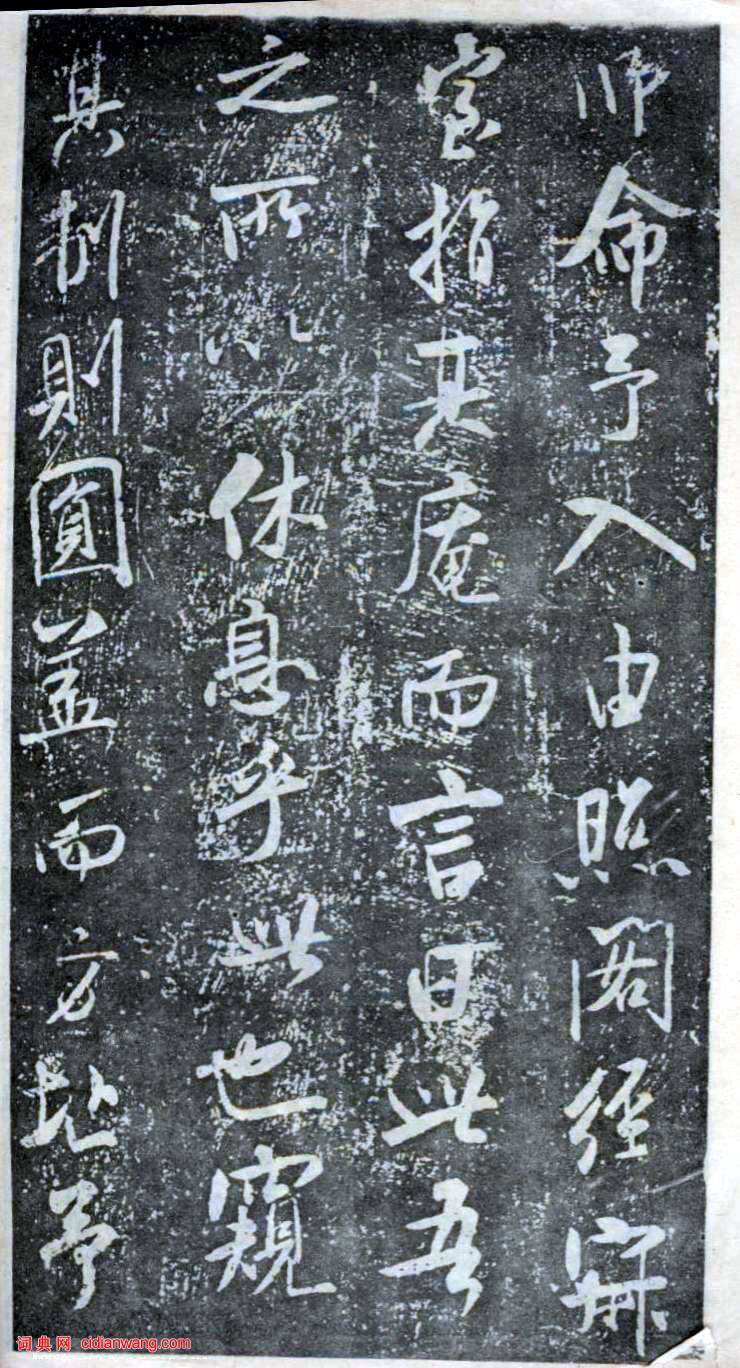 师命予入由照阁經寐
室指其庵而言曰此吾
之所以休息乎此也窺
其制則圓盖而方址予
词典网 cidianwang.com